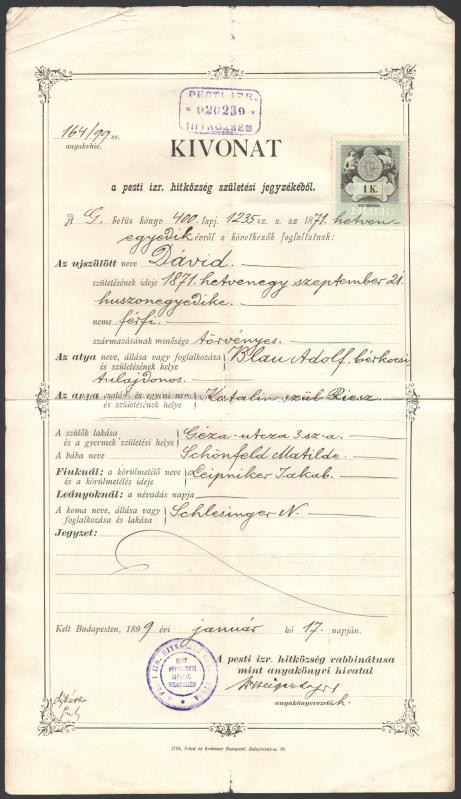 PESTI IZR.
* 020239 *
HITKÖZSÉG
164/99 sz.
anyakvhiv.
KIVONAT
1 K.
a pesti izr. hitközség születési jegyzékéből.
A G. betüs könyv 400. lapj. 1235 sz. a. az 1871. hetven
egyedik évről a következők foglaltatnak:
Az ujszülött neve Dávid.
születésének ideje 1871. hetvenegy szeptember 21.
huszonegyedike.
neme férfi.
származásának minősége törvényes.
Az atya neve, állása vagy foglalkozása Blau Adolf, bérkocsi
és születésének helye
tulajdonos.
Az anya családi és egyéni neve Katalin szül. Riesz
és születésének helye
A szülők lakása Géza-utcza 3 sz. a.
és a gyermek születési helye
A bába neve Schönfeld Matilde.
Fiuknál: a körülmetélő neve Leipniker Jakab.
és a körülmetélés ideje
Leányoknál: a névadás napja
A koma neve, állása vagy Schlesinger N.
foglalkozása és lakása
Jegyzet:
Kelt Budapesten, 1899 évi január hó 17. napján.
A pesti izr. hitközség rabbinátusa
mint anyakönyvi hivatal
anyakönyvvezető h.